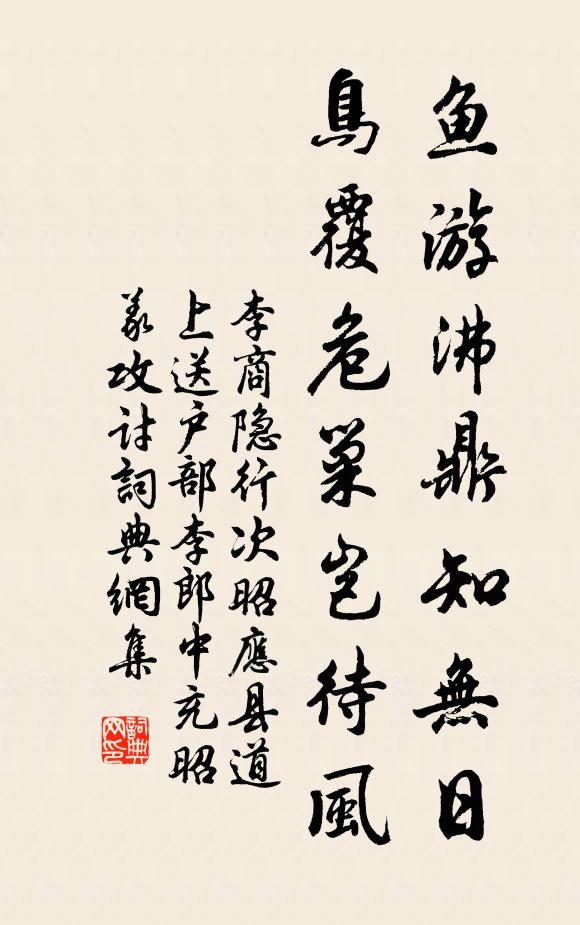 鱼游沸鼎知無日
鳥覆危巢岂待風
李商隐行次昭應县道
上送户部李郎中充昭
义攻讨詞典網集
詞典
网印